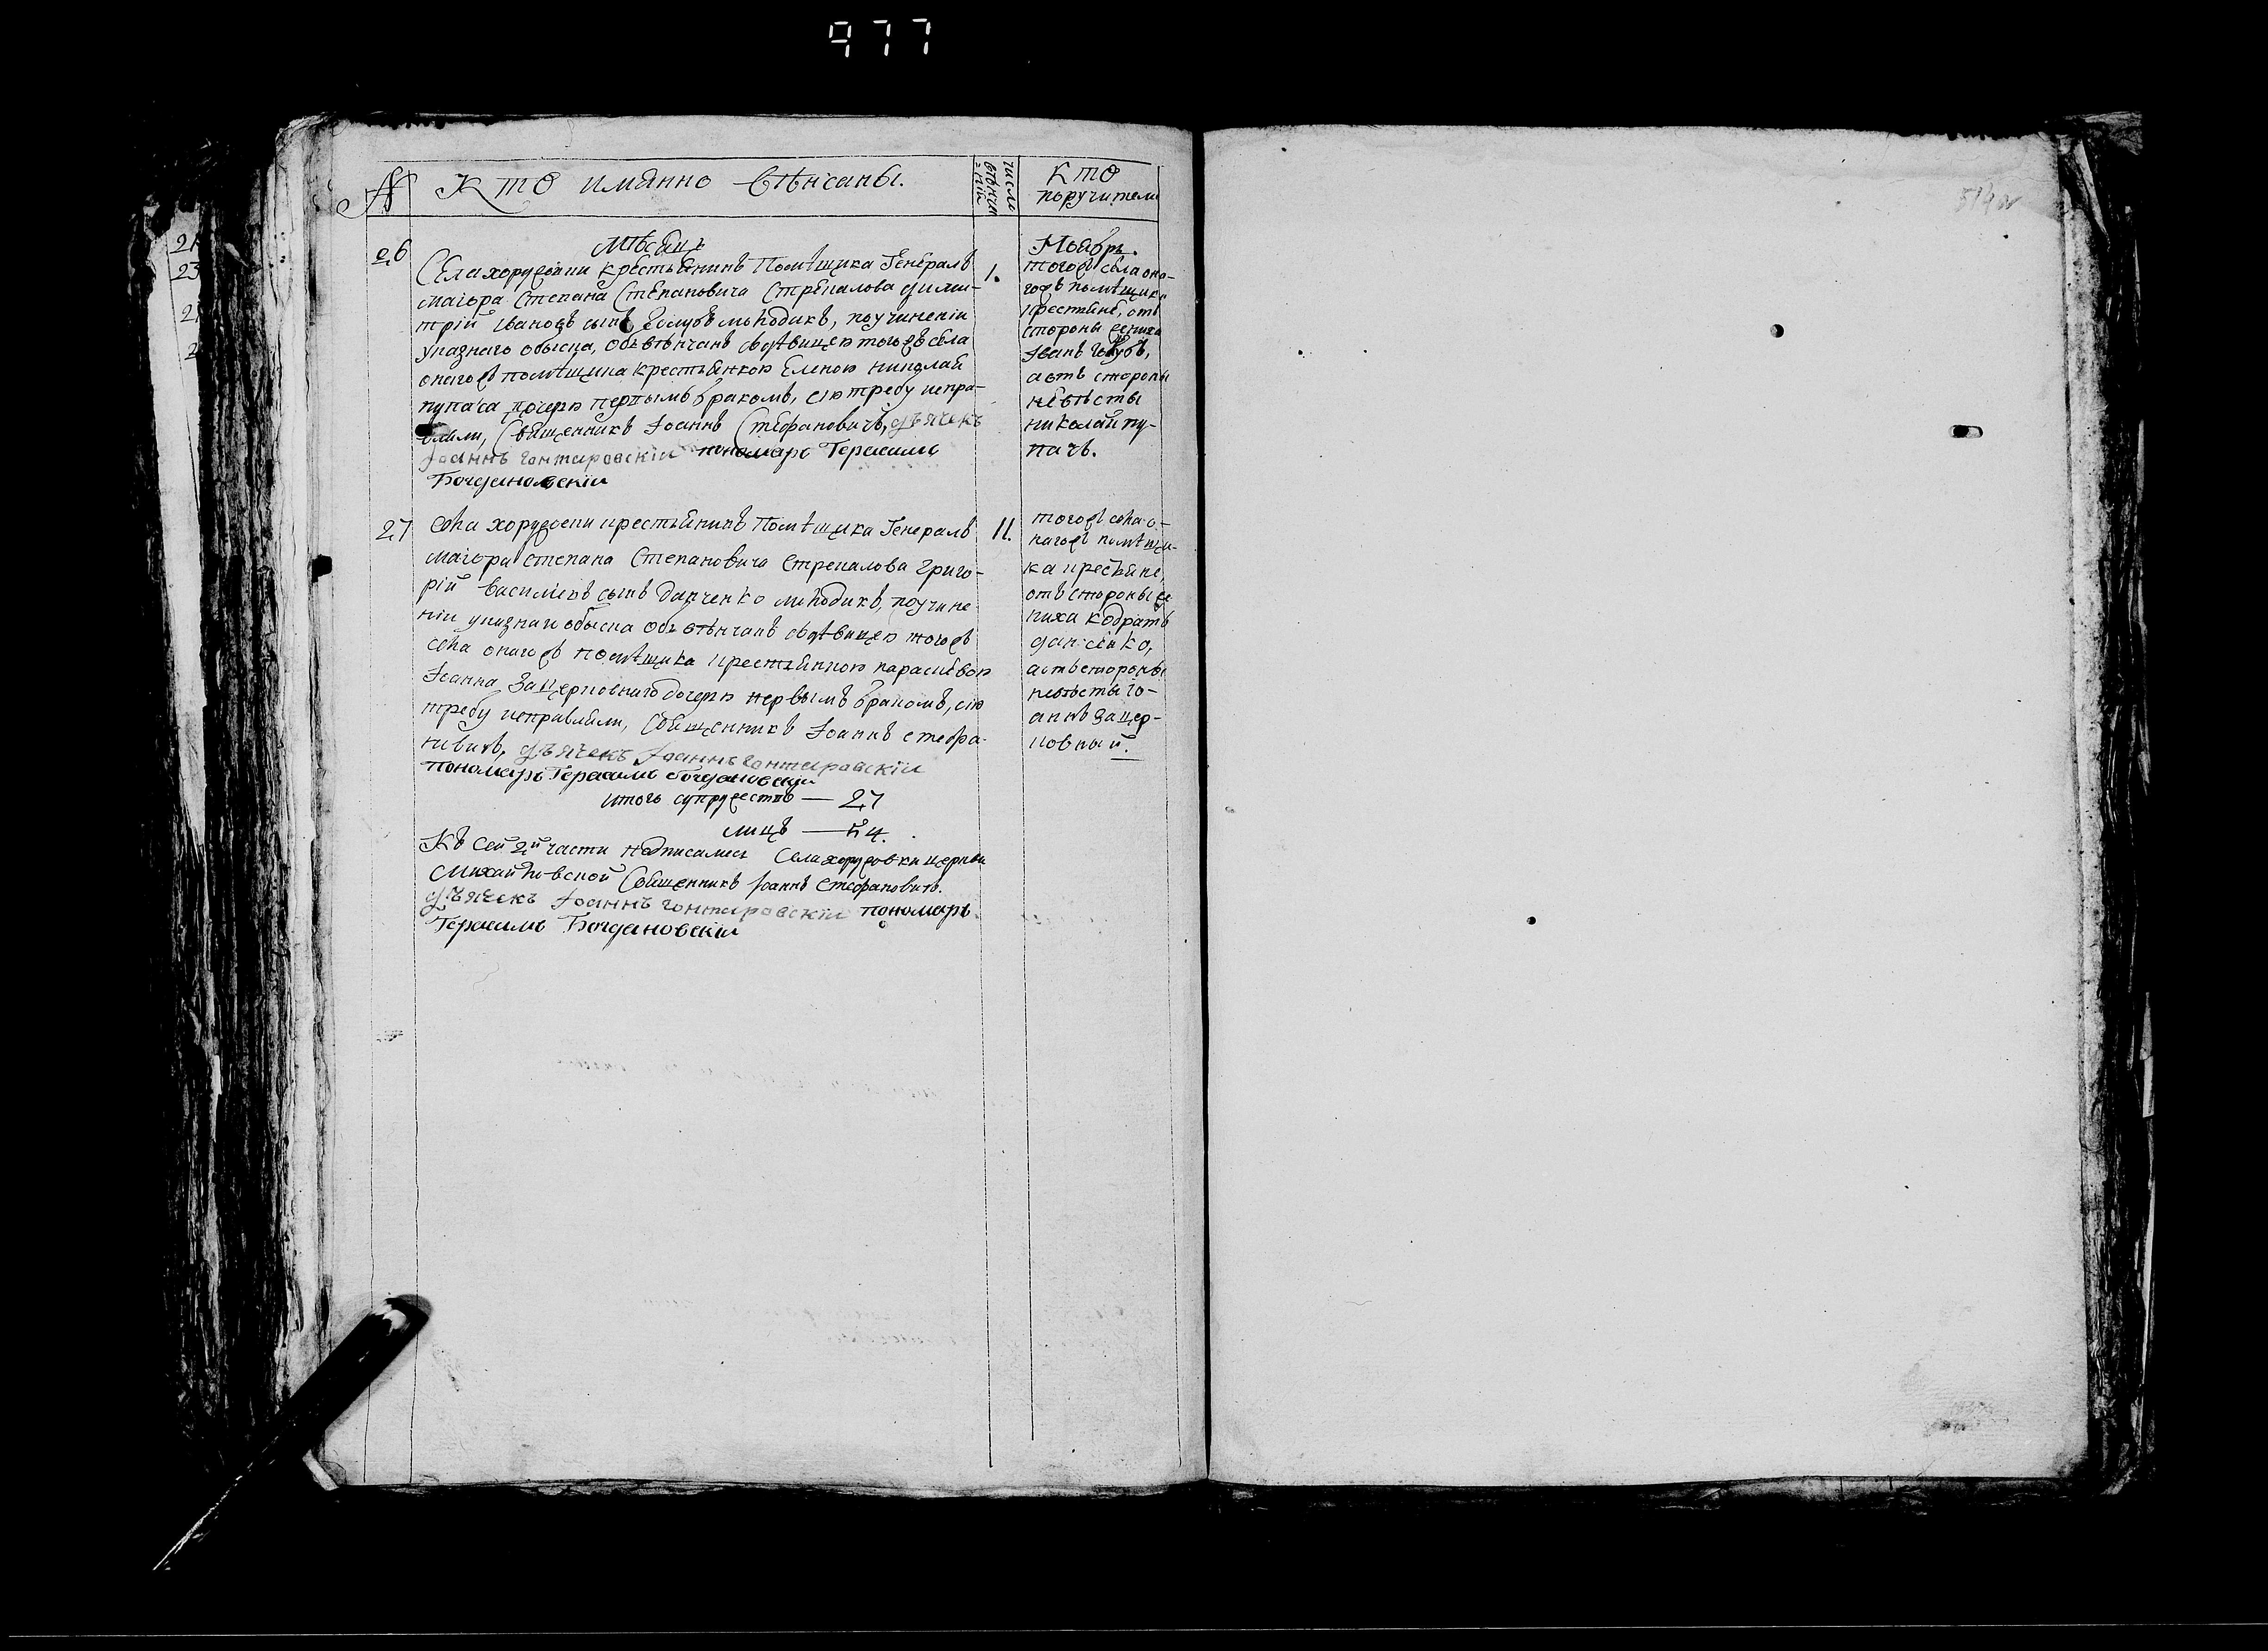 977
№ Кто имянно вѣнсаны.
число
вѣнча
нiй
Кто
поручители
21
23
2
2
Мѣсяцъ
Ноябрь.
26
Села хоружовки крестьянинъ Помѣщика Генералъ
маіора Степана Степановича Стрекалова дими-
трій Івановъ сынъ Голубъ молодикъ, поучиненіи
указнаго обыска, обьвѣнчанъ здѣвицею тогожъ села
оногожъ помѣщика крестьянкою Еленою николая
пупача дочерю первымъ бракомъ, сію требу испра-
вляли, Священникъ Іоаннъ Стефановичъ, дъячекъ
Іоаннъ гонтаровскіи пономарь Герасимъ
Богдановскіи
1.
тогожъ села оно-
гожъ помѣщика
крестьяне, отъ
стороны жениха
Іванъ Голубъ,
аотъ стороны
невѣсты
николай пу-
пачъ.
27
села хоружовки крестьянинъ Помѣщика Генералъ
маіора Степана Степановича Стрекалова Григо-
рій василіевъ сынъ данченко молодикъ, поучине
ніи указнаго обыска обьвѣнчанъ здѣвицею тогожъ
села оногожъ помѣщика крестьянкою параскевою
Іоанна Зацерковнаго дочерю первымъ бракомъ, сію
требу исправляли, Священникъ Іоаннъ стефа-
новичъ, дъячекъ Іоаннъ гонтаровскіи
пономарь Герасимъ богдановскіи
11.
тогожъ села о-
ногожъ помѣщи-
ка крестьяне,
отъ стороны же
ниха кодратъ
данченко,
аотъ стороны
невѣсты Іо-
аннъ Зацер-
ковный.
итого супружество — 27
лицъ — 54.
Къ сей 2й части подписались Села хоружовки церкви
Михайловской Священникъ Іоаннъ Стефановичъ.
дъячекъ Іоаннъ гонтаровскіи пономарь
Герасимъ Богдановскіи